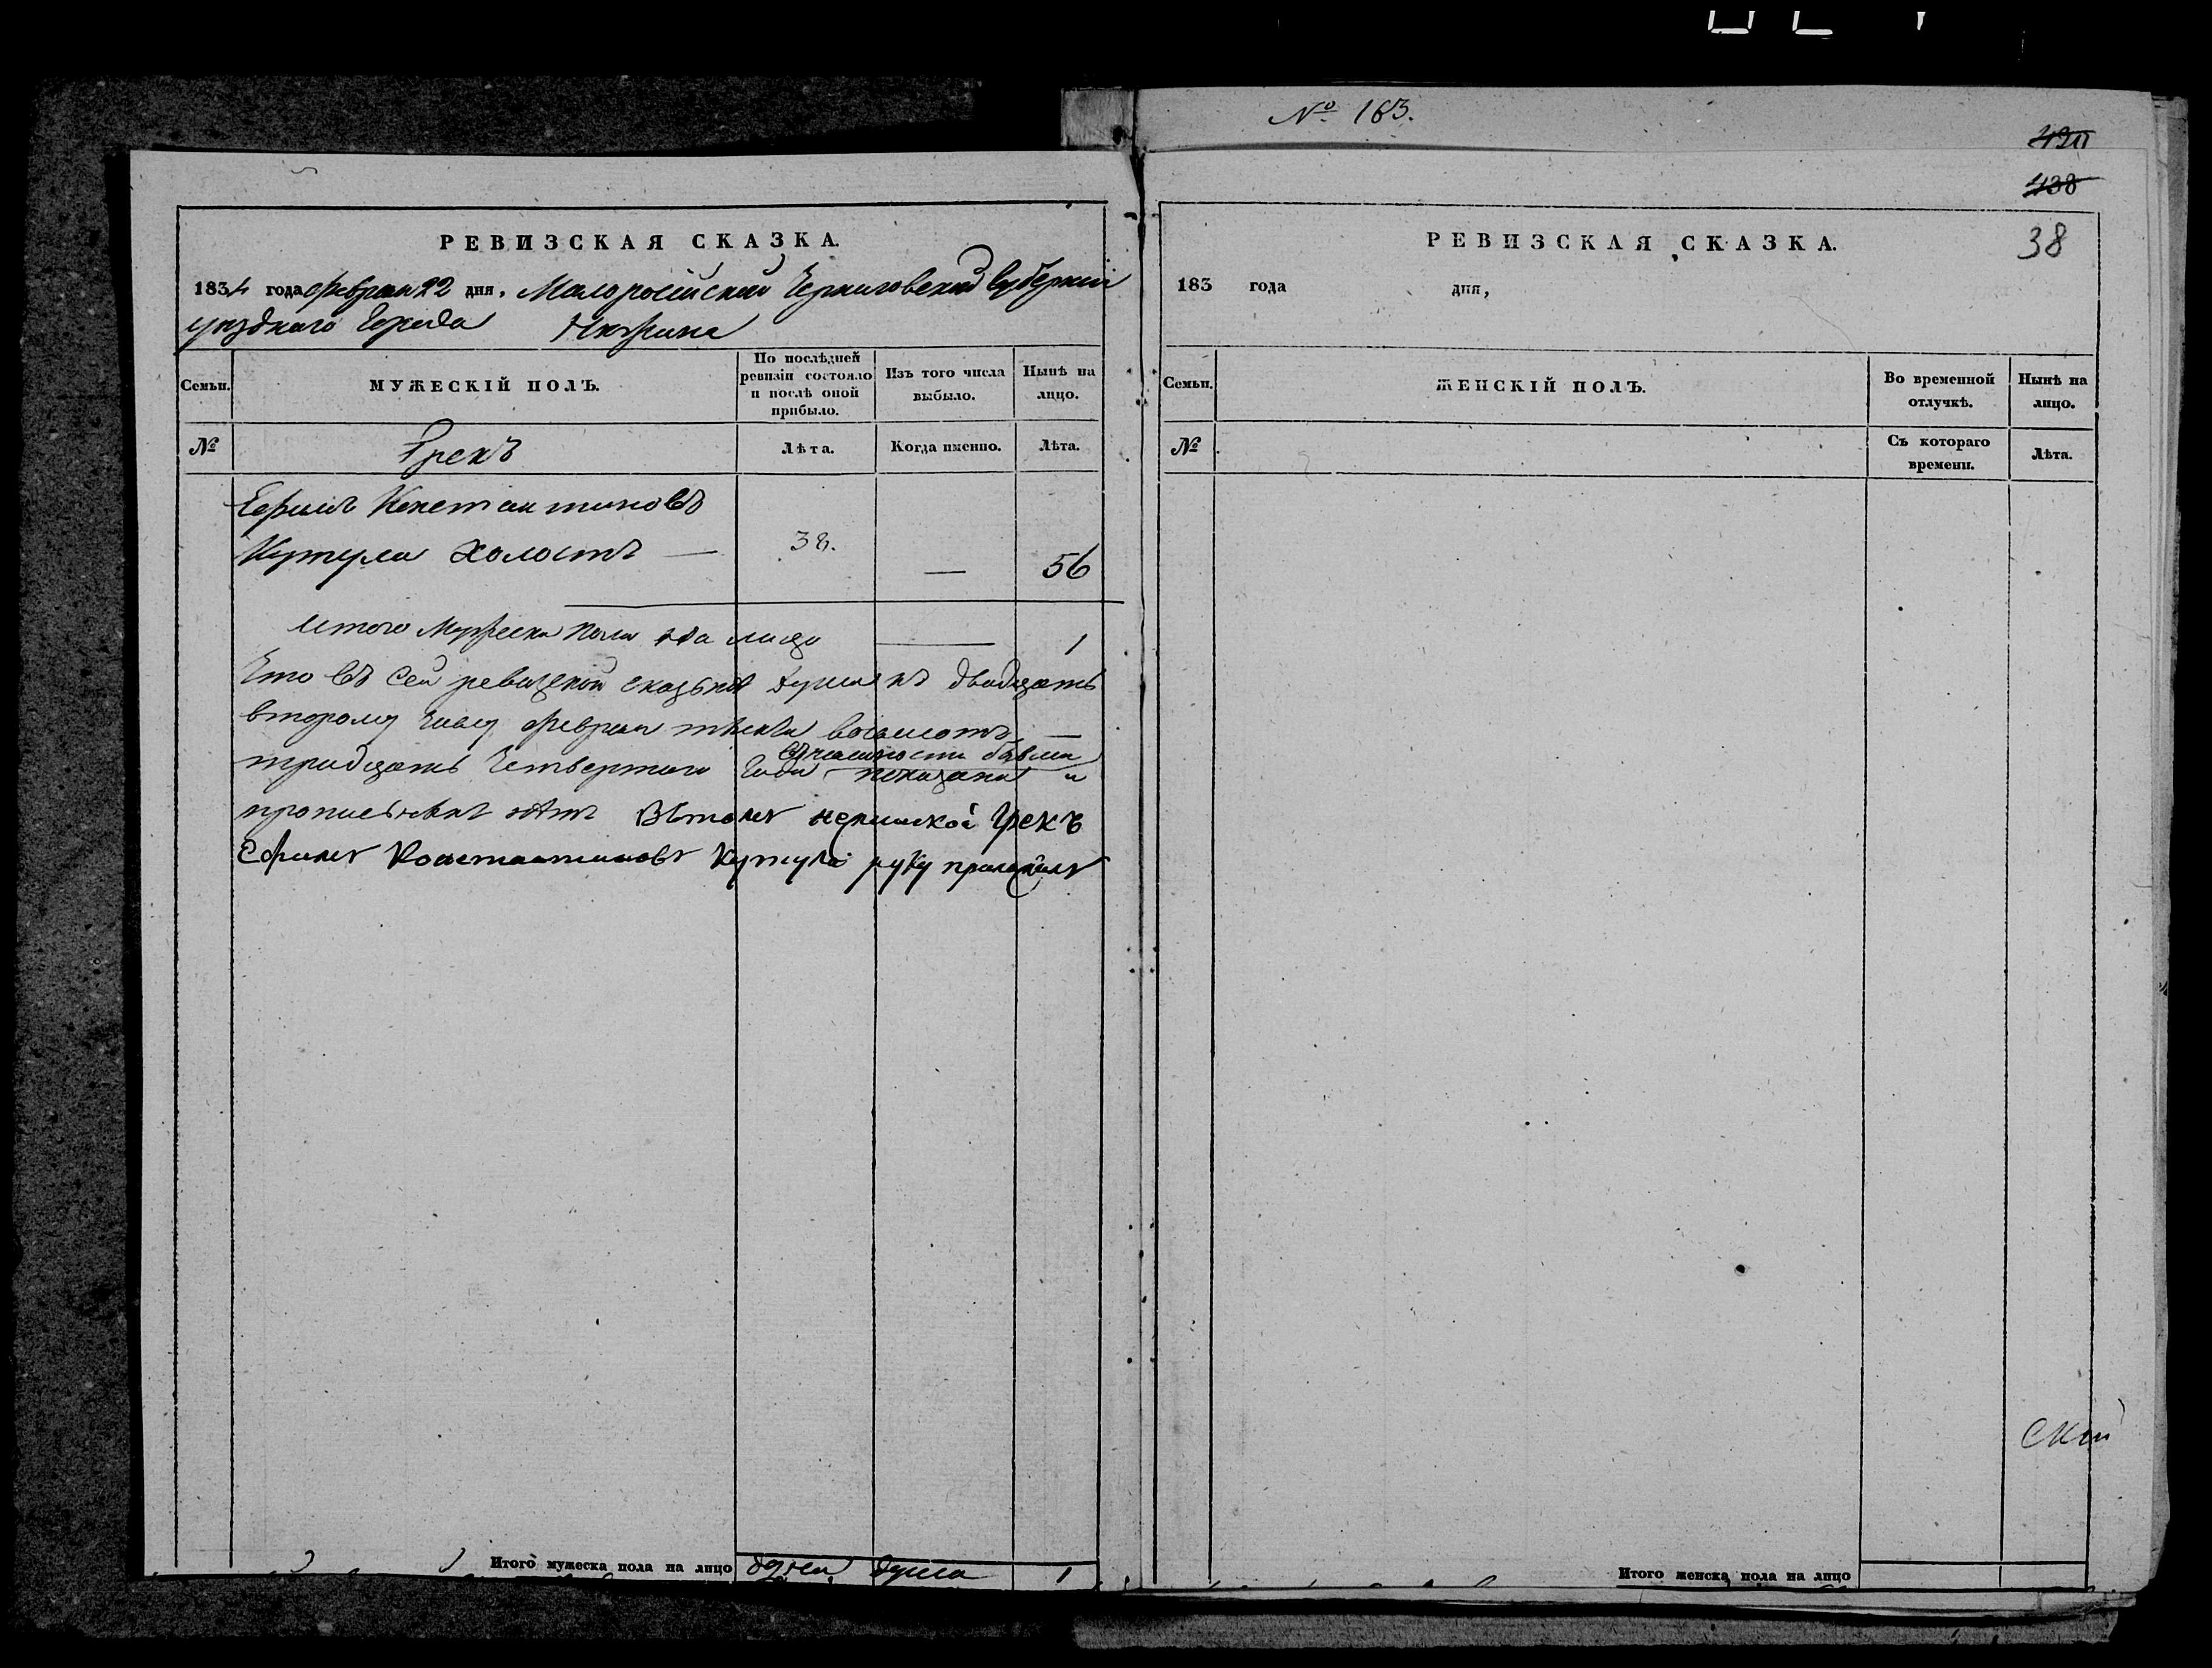 № 163.
420
438
38
РЕВИЗСКАЯ СКАЗКА.
1834 года февраля 22 дня, Малоросійской Черниговской Губерніи
уѣзднаго Города Нѣжина
Семьи.
МУЖЕСКІЙ ПОЛЪ.
По послѣдней ревизіи состояло и послѣ оной прибыло.
Изъ того числа выбыло.
Нынѣ на лицо.
№
Грекъ
Лѣта.
Когда именно.
Лѣта.
Ефимъ Константиновъ
Кутула Холостъ — 38. — 56
Итого Мужеска пола на лицо — 1
Что въ сей ревизской сказкѣ душа къ двадцать
второму числу февраля восемсотъ —
тридцать четвертаго Года показана и
прописныхъ нѣтъ Вътомъ нежинской Грекъ
Ефимъ Константиновъ Кутула руку приложилъ
Итого мужеска пола на лицо одна душа 1
РЕВИЗСКАЯ СКАЗКА.
183 года дня,
Семьи.
ЖЕНСКІЙ ПОЛЪ.
Во временной отлучкѣ.
Нынѣ на лицо.
№
Съ котораго времени.
Лѣта.
ской
Итого женска пола на лицо